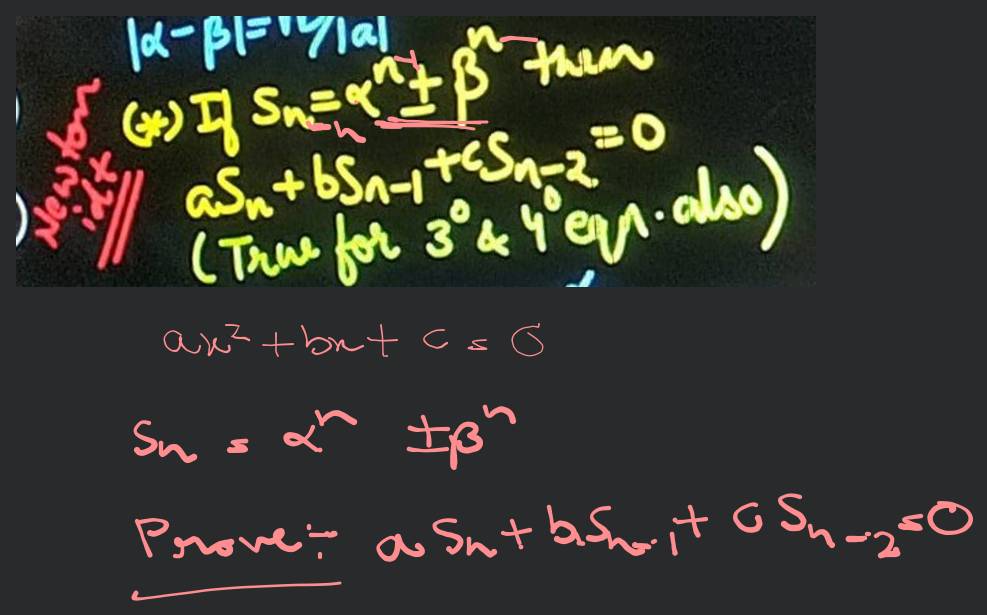 |α-β|=√D/|a|
Newton
(*) If Sn = αⁿ ± βⁿ then
aSn + bSn-1 + cSn-2 = 0
(True for 3° & 4° eqn. also)
ax² + bx + c = 0
Sn = αⁿ ± βⁿ
Prove:- aSn + bSn-1 + cSn-2 = 0